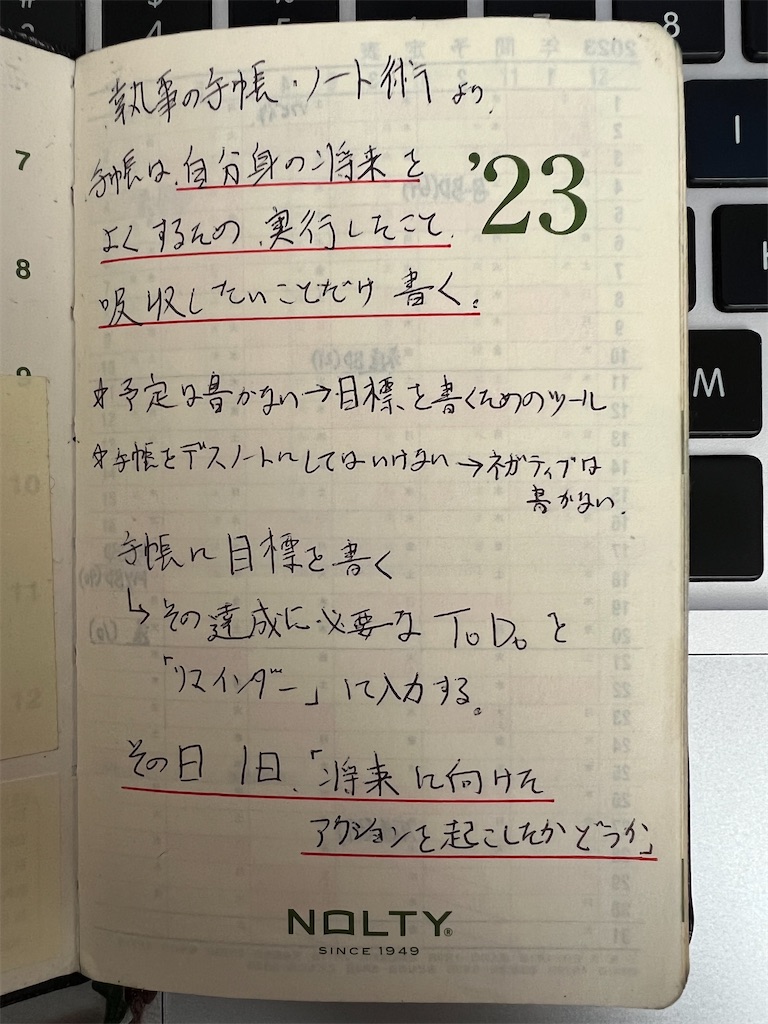 執事の手帳・ノート術より
手帳は、自分自身の将来を
よくするための、実行したこと、
吸収したいことだけ書く。
'23
*予定は書かない→目標を書くためのツール
*手帳をデスノートにしてはいけない→ネガティブは
書かない。
手帳に目標を書く
↳その達成に必要なToDoを
「リマインダー」に入力する。
その日1日、「将来に向けた
アクションを起こしたかどうか」
NOLTY®
SINCE 1949
7
8
9
10
11
12
4
8
I
M